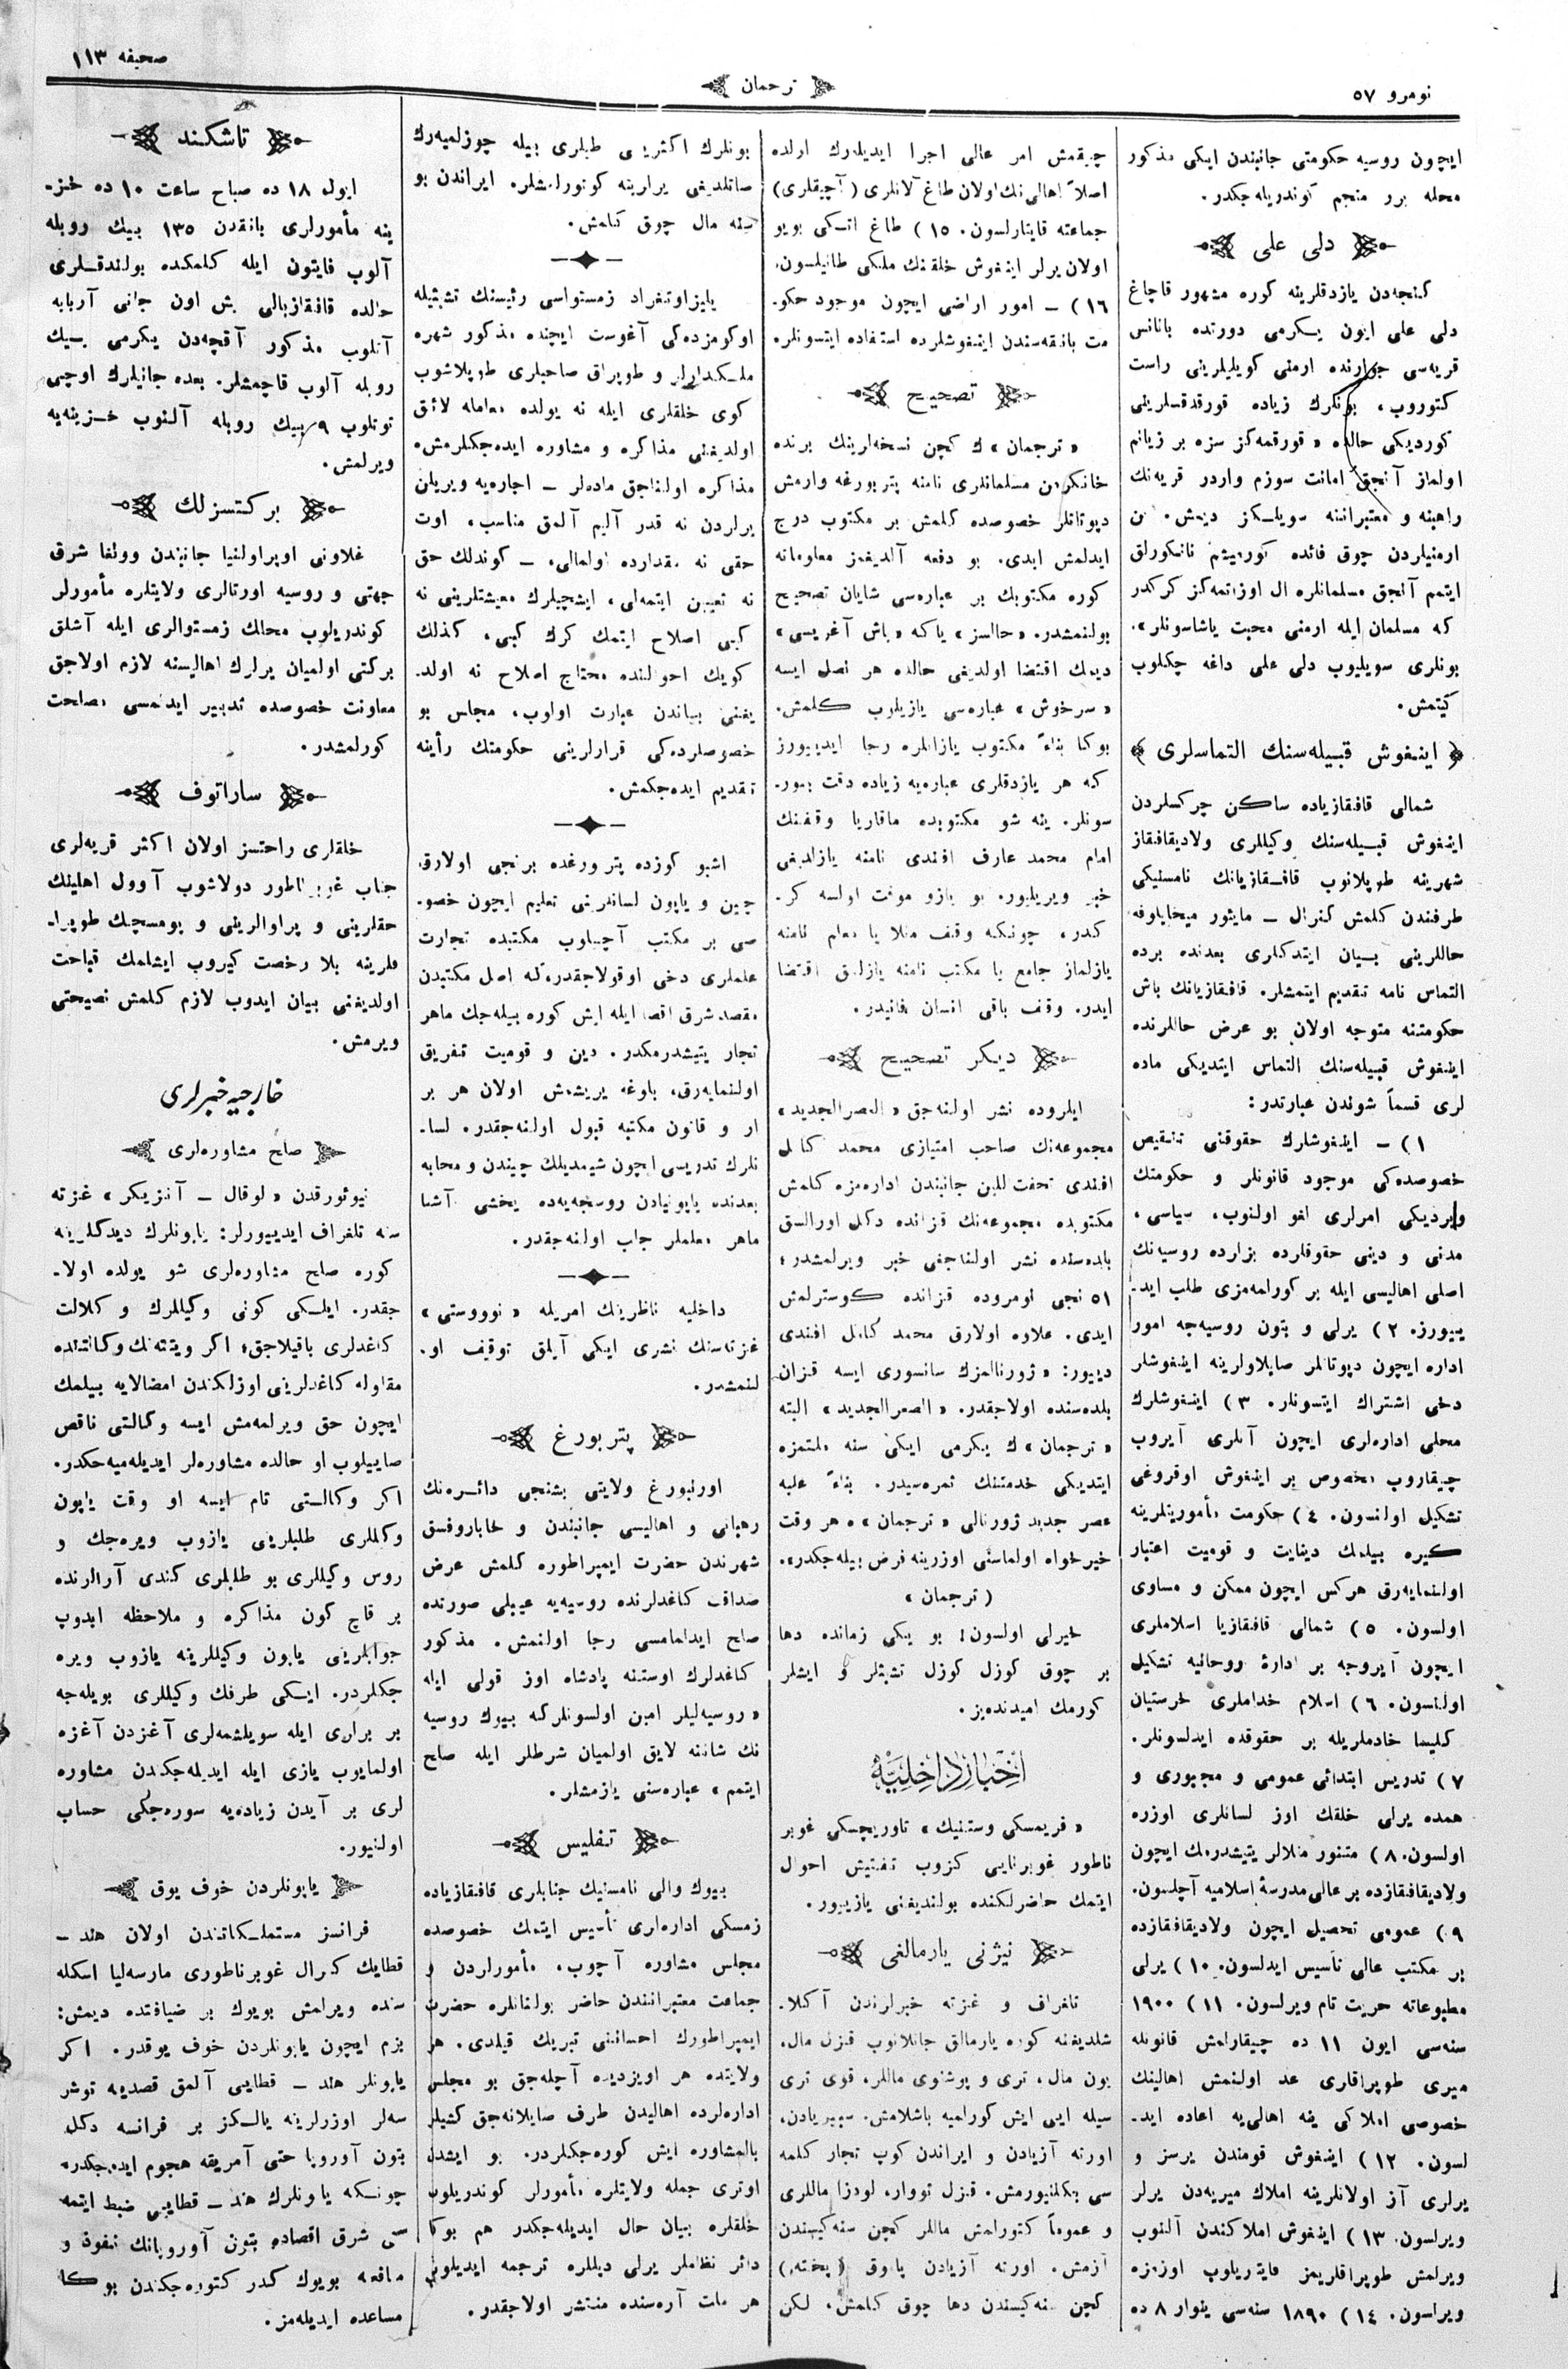 نومرو ٥٧
ترجمان
صحيفه ١١٣
ايچون روسيه حكومتى جانبندن ايكى مذكور
محله برر منجم كوندريله‌جكدر.
دلى على
كنجه‌دن يازدقلرينه كوره مشهور قاچاغ
دلى على ايون يكرمى دورنده بانانس
قريه‌سى جوارنده ارمنى كويليلرينى راست
كتوروب، بونلرك زياده قورقدقلرينى
كورديكى حالده «قورقمه‌كز سزه بر زيانم
اولماز آنجق امانت سوزم واردر قريه‌نك
راهبنه و معتبراننه سويلكز ديمش. بن
ارمنيلردن چوق فائده كورميشم نانكورلق
ايتمم آنجق مسلمانلره ال اوزاتمه‌كز كركدر
كه مسلمان ايله ارمنى محبت ياشاسونلر».
بونلرى سويليوب دلى على داغه چكلوب
كيتمش.
اينغوش قبيله‌سنك التماسلرى
شمالى قافقازياده ساكن چركسلردن
اينغوش قبيله‌سنك وكيللرى ولاديقافقاز
شهرينه طوپلانوب قافقازيانك نامسنيكى
طرفندن كلمش كنرال ـ مايئور ميخايلوفه
حاللرينى بيان ايتدكلرى بعدنده برده
التماس نامه تقديم ايتمشلر. قافقازيانك باش
حكومتنه متوجه اولان بو عرض حاللرنده
اينغوش قبيله‌سنك التماس ايتديكى ماده
لرى قسماً شوندن عبارتدر:
١) ـ اينغوشلرك حقوقنى تنقيص
خصوصده‌كى موجود قانونلر و حكومتك
ويرديكى امرلرى لغو اولنوب، سياسى،
مدنى و دينى حقوقلرده بزلرده روسيه‌نك
اصلى اهاليسى ايله بر كورلمه‌مزى طلب ايد‌ـ
ييورز. ٢) يرلى و بتون روسيه‌جه امور
اداره ايچون دپوتاتلر صايلاولرينه اينغوشلر
دخى اشتراك ايتسونلر. ٣) اينغوشلرك
محلى اداره‌لرى ايچون آنلرى آيروب
چيقاروب مخصوص بر اينغوش اوقروغى
تشكيل اولنسون. ٤) حكومت مأموريتلرينه
كيره بيلمك ديانت و قوميت اعتبار
اولنمايه‌رق هركس ايچون ممكن و مساوى
اولسون. ٥) شمالى قافقازيا اسلاملرى
ايچون آيروجه بر ادارهٔ روحانيه تشكيل
اولنسون. ٦) اسلام خداملرى خرستيان
كليسا خادملريله بر حقوقده ايدلسونلر.
٧) تدريس ابتدائى عمومى و مجبورى و
همده يرلى خلقك اوز لسانلرى اوزره
اولسون. ٨) متنور منلالر يتيشدرمك ايچون
ولاديقافقازده بر عالى مدرسهٔ اسلاميه آچلسون.
٩) عمومى تحصيل ايچون ولاديقافقازده
بر مكتب عالى تأسيس ايدلسون. ١٠) يرلى
مطبوعاته حريت تام ويرلسون. ١١) ١٩٠٠
سنه‌سى ايون ١١ ده چيقارلمش قانونله
ميرى طوپراقلرى عد اولنمش اهالينك
خصوصى املاكى ينه اهالى‌يه اعاده ايد‌ـ
لسون. ١٢) اينغوش قومندن يرسز و
يرلرى آز اولانلرينه املاك ميريه‌دن يرلر
ويرلسون. ١٣) اينغوش املاكندن آلنوب
ويرلمش طوپراقلريمز قايتريلوب اوزمزه
ويرلسون. ١٤) ١٨٩٠ سنه‌سى ينوار ٨ ده
چيقمش امر عالى اجرا ايديلرك ارلده
اصلاً اهالى‌نك اولان طاغ آلانلرى (آچيقلرى)
جماعته قايتارلسون. ١٥) طاغ اتكى بويو
اولان يرلر اينغوش خلقنك ملكى طانيلسون.
١٦) ـ امور اراضى ايچون موجود حكو‌ـ
مت بانقه‌سندن اينغوشلرده استفاده ايتسونلر.
تصحيح
«ترجمان» ك كچن نسخه‌لرينك برنده
خانكرمن مسلمانلرى نامنه پتربورغه وارمش
دپوتاتلر خصوصده كلمش بر مكتوب درج
ايدلمش ايدى. بو دفعه آلديغمز معلوماته
كوره مكتوبك بر عباره‌سى شايان تصحيح
بولنمشدر. «حالسز» ياكه «باش آغريسى»
ديمك اقتضا اولديغى حالده هر نصل ايسه
«سرخوش» عباره‌سى يازيلوب كلمش.
بوكا بناءً مكتوب يازانلره رجا ايدييورز
كه هر يازدقلرى عباره‌يه زياده دقت بيور‌ـ
سونلر. ينه شو مكتوبده ماقاريا وقفنك
امام محمد عارف افندى نامنه يازلديغى
خبر ويريليور. بو يازو موقت اولسه كر‌ـ
كدر، چونكه وقف منلا يا معلم نامنه
يازلماز جامع يا مكتب نامنه يازلمق اقتضا
ايدر. وقف باقى انسان فانيدر.
ديكر تصحيح
ايلروده نشر اولنه‌جق «العصرالجديد»
مجموعه‌نك صاحب امتيازى محمد كامل
افندى تحفت‌للين جانبندن اداره‌مزه كلمش
مكتوبده مجموعه‌نك قزانده دكل اورالسق
بلده‌سنده نشر اولناجغى خبر ويرلمشدر؛
٥١ نجى نومروده قزانده كوسترلمش
ايدى. علاوه اولارق محمد كامل افندى
دييور: «ژورنالمزك سانسورى ايسه قزان
بلده‌سنده اولاجقدر. «العصرالجديد» البته
«ترجمان» ك يكرمى ايكى سنه ملتمزه
ايتديكى خدمتنك ثمره‌سيدر. بناءً عليه
عصر جديد ژورنالى «ترجمان» ه هر وقت
خيرخواه اولماسنى اوزرينه فرض بيله‌جكدر».
(ترجمان»
خيرلى اولسون! بو يكى زمانده دها
بر چوق كوزل كوزل تشبثلر و ايشلر
كورمك اميدنده‌يز.
اخبار داخليه
«قريمسكى وستنيك» تاوريچسكى غوبر
ناطور غوبرنايى كزوب تفتيش احوال
ايتمك حاضرلكنده بولنديغنى يازييور.
نيژنى يارمالغى
تلغراف و غزته خبرلرندن آكلا‌ـ
شلديغنه كوره يارمالق جانلانوب قزل مال،
يون مال، ترى و پوشنوى ماللر، قوى ترى
سيله ايى ايش كورلميه باشلامش. سيبريادن،
اورته آزيادن و ايراندن كوپ تجار كلمه
سى بكلنيورمش. قزل تووار، لودزا ماللرى
و عموماً كتورلمش ماللر كچن سنه‌كيندن
آزمش. اورته آزيادن پاموق (پخته)
كچن سنه‌كيسندن دها چوق كلمش. لكن
بونلرك اكثريسى طبلرى بيله چوزلميه‌رك
صاتلديغى يرلرينه كوتورلمشلر. ايراندن بو
سنه مال چوق كلمش.
يليزاوتغراد زمستواسى رئيسنك تشبثيله
اوكومزده‌كى آغوست ايچنده مذكور شهره
ملكدارلر و طوپراق صاحبلرى طوپلاشوب
كوى خلقلرى ايله نه يولده معامله لائق
اولديغنى مذاكره و مشاوره ايده‌جكلرمش.
مذاكره اولناجق ماده‌لر ـ اجاره‌يه ويريلن
يرلردن نه قدر آليم آلمق مناسب، اوت
حقى نه مقدارده اولمالى. ـ كوندلك حق
نه تعيين ايتمه‌لى، ايشچيلرك معيشتلرينى نه
كبى اصلاح ايتمك كرك كبى، كذلك
كويك احوالنده محتاج اصلاح نه اولد‌ـ
يغنى بياندن عبارت اولوب، مجلس بو
خصوصلرده‌كى قرارلرينى حكومتك رأينه
تقديم ايده‌جكمش.
اشبو كوزده پتربورغده برنجى اولارق
چين و ياپون لسانلرينى تعليم ايچون خصو‌ـ
صى بر مكتب آچيلوب مكتبده تجارت
علملرى دخى اوقولاجقدر‌كه اصل مكتبدن
مقصد شرق اقصا ايله ايش كوره بيله‌جك ماهر
تجار يتيشدرمكدر. دين و قوميت تفريق
اولنمايه‌رق، بلوغه يريشمش اولان هر بر
ار و قانون مكتبه قبول اولنه‌جقدر. لسا‌ـ
نلرك تدريسى ايچون شيمديلك چيندن و محابه
بعدنده ياپونيادن روسجه‌يه‌ده يخشى آشنا
ماهر معلملر جلب اولنه‌جقدر.
داخليه ناظرينك امريله «نوووستى»
غزته‌سنك نشرى ايكى آيلق توقيف او‌ـ
لنمشدر.
پتربورغ
اورنبورغ ولايتى بشنجى دائره‌نك
رهبانى و اهاليسى جانبندن و خاباروفسق
شهرندن حضرت ايمپراطوره كلمش عرض
صداقت كاغدلرنده روسيه‌يه عيبلى صورتده
صلح ايدلمامسى رجا اولنمش. مذكور
كاغدلرك اوستنه پادشاه اوز قولى ايله
«روسيه‌ليلر امين اولسونلركه بيوك روسيه
نك شاننه لايق اولميان شرطلر ايله صلح
ايتمم» عباره‌سنى يازمشلر.
تفليس
بيوك والى نامسنيك جنابلرى قافقازياده
زمسكى اداره‌لرى تأسيس ايتمك خصوصده
مجلس مشاوره آچوب، مأمورلردن و
جماعت معتبراننندن حاضر بولنانلره حضرت
ايمپراطورك احساننى تبريك قيلدى. هر
ولايتده هر اويزديده آچله‌جق بو مجلس
اداره‌لرده اهاليدن طرف صايلانه‌جق كشيلر
بالمشاوره ايش كوره‌جكلردر. بو ايشدن
اوترى جمله ولايتلره مأمورلر كوندريلوب
خلقلره بيان حال ايديله‌جكدر هم بوكا
دائر نظاملر يرلى ديللره ترجمه ايديلوب
هر ملت آره‌سنده منتشر اولاجقدر.
تاشكند
ايول ١٨ ده صباح ساعت ١٠ ده خز‌ـ
ينه مأمورلرى بانقدن ١٣٥ بيك روبله
آلوب فايتون ايله كلمكده بولندقلرى
حالده قافقازيالى بش اون جانى آرابايه
آتلوب مذكور آقچه‌دن يكرمى بيك
روبله آلوب قاچمشلر. بعده جانيلرك اوچى
توتلوب ٩ بيك روبله آلنوب خزينه‌يه
ويرلمش.
بركتسزلك
غلاونى اوپراولنيا جانبندن وولغا شرق
جهتى و روسيه اورتالرى ولايتلره مأمورلر
كوندريلوب محلك زمستوالرى ايله آشلق
بركتى اولميان يرلرك اهاليسنه لازم اولاجق
معاونت خصوصده تدبير ايدلمسى مصلحت
كورلمشدر.
ساراتوف
خلقلرى راحتسز اولان اكثر قريه‌لرى
جناب غوبرناطور دولاشوب آوول اهلينك
حقلرينى و پراوالرينى و پومسچيك طوپرا‌ـ
قلرينه بلا رخصت كيروب ايشلمك قباحت
اولديغنى بيان ايدوب لازم كلمش نصيحتى
ويرمش.
خارجيه خبرلرى
صلح مشاوره‌لرى
نيوئورقدن «لوقال ـ آنزيكر» غزته
سنه تلغراف ايدييورلر: ياپونلرك ديدكلرينه
كوره صلح مشاوره‌لرى شو يولده اولا‌ـ
جقدر. ايلكى كونى وكيللرك و كلالت
كاغدلرى باقيلاجق؛ اكر ويتته‌نك وكالتنده
مقاوله كاغدلرينى اوزلكندن امضالايه بيلمك
ايچون حق ويرلمه‌مش ايسه وكالتى ناقص
صاييلوب او حالده مشاوره‌لر ايديله‌ميه‌جكدر.
اكر وكالتى تام ايسه او وقت ياپون
وكللرى طلبلرينى يازوب ويره‌جك و
روس وكيللرى بو طلبلرى كندى آرالرنده
بر قاچ كون مذاكره و ملاحظه ايدوب
جوابلرينى ياپون وكيللرينه يازوب ويره
جكلردر. ايكى طرفك وكيللرى بويله‌جه
بر برلرى ايله سويلشمه‌لرى آغزدن آغزه
اولمايوب يازى ايله ايديله‌جكندن مشاوره
لرى بر آيدن زياده‌يه سوره‌جكى حساب
اولنيور.
ياپونلردن خوف يوق
فرانسز مستملكاتندن اولان هند ـ
قطايك كنرال غوبرناطورى مارسه‌ليا اسكله
سنده ويرلمش بويوك بر ضيافتده ديمش:
بزم ايچون ياپونلردن خوف يوقدر. اكر
ياپونلر هند ـ قطايى آلمق قصديه توشر
سه‌لر اوزرلرينه يالكز بر فرانسه دكل
بتون آوروپا حتى آمريقه هجوم ايده‌جكدر؛
چونكه ياپونلرك هند ـ قطايى ضبط ايتمه
سى شرق اقصاده بتون آوروپانك نفوذ و
منافعنه بويوك كدر كتوره‌جكندن بوكا
مساعده ايديله‌مز.